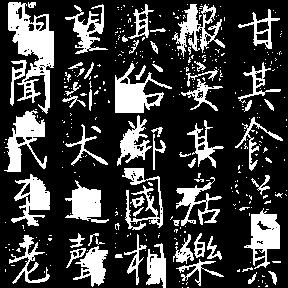 甘其食美其
服安其居樂
其俗鄰國相
望雞犬之聲
相聞民至老